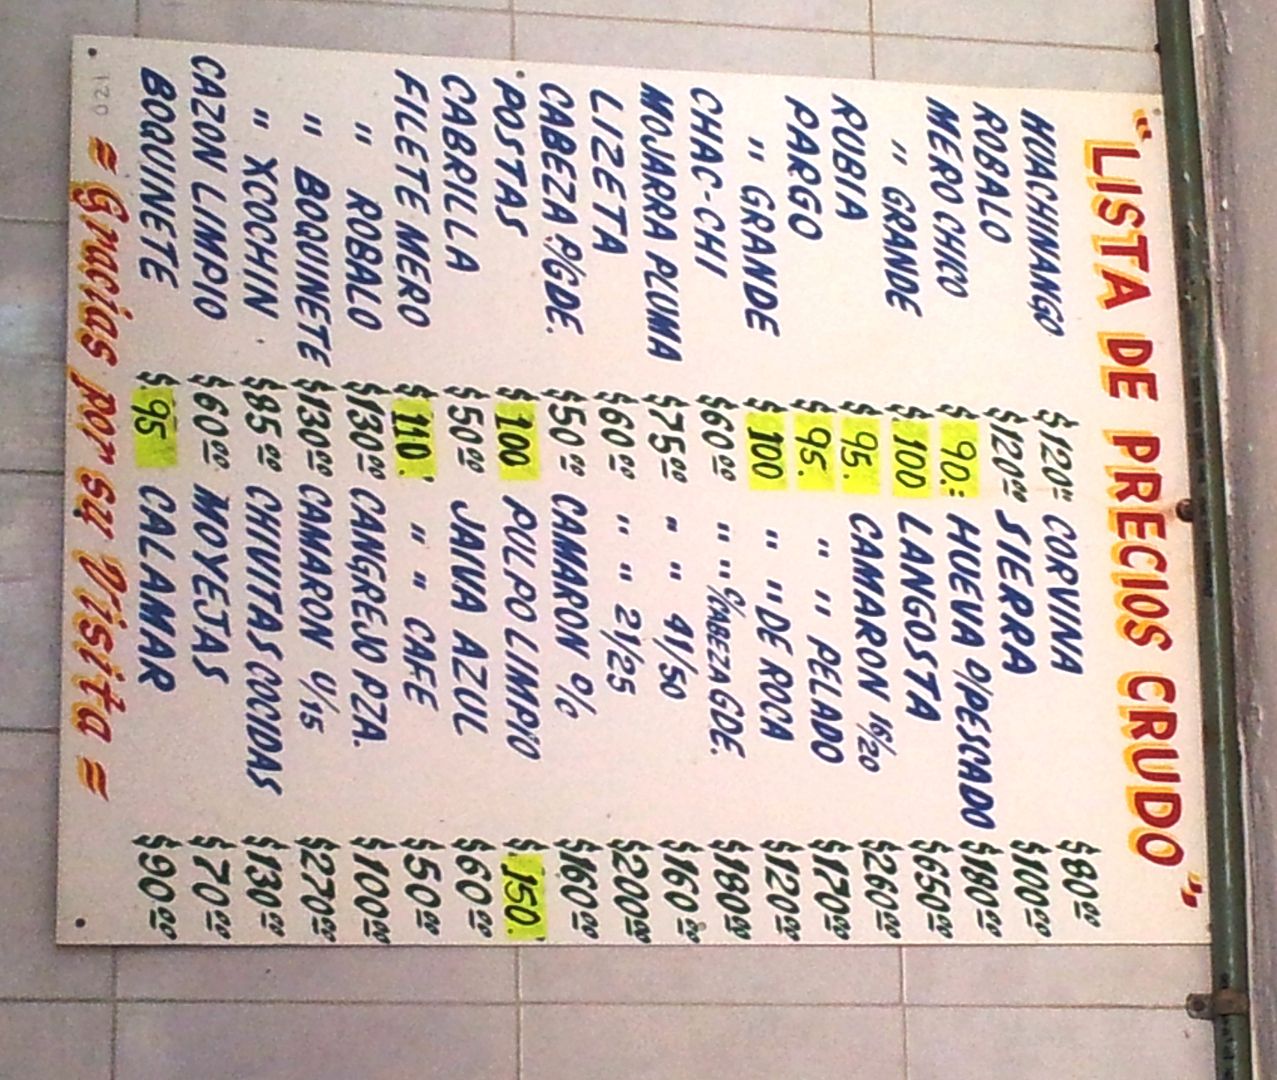 "LISTA DE PRECIOS CRUDO"
HUACHINANGO $120.00 CORVINA $80.00
ROBALO $120.00 SIERRA $100.00
MERO CHICO $90.= HUEVA D/PESCADO $180.00
" GRANDE $100 LANGOSTA $650.00
RUBIA $95. CAMARON 16/20 $260.00
PARGO $95. " " PELADO $170.00
" GRANDE $100 " " DE ROCA $120.00
CHAC-CHI $60.00 " " C/CABEZA GDE. $180.00
MOJARRA PLUMA $75.00 " " 41/50 $160.00
LIZETA $60.00 " " 21/25 $200.00
CABEZA P/GDE. $50.00 CAMARON C/C $160.00
POSTAS $100 PULPO LIMPIO $150.
CABRILLA $50.00 JAIVA AZUL $60.00
FILETE MERO $110. " " CAFE $50.00
" ROBALO $130.00 CANGREJO PZA. $100.00
" BOQUINETE $130.00 CAMARON U/15 $270.00
" XCOCHIN $85.00 CHIVITAS COCIDAS $130.00
CAZON LIMPIO $60.00 MOYEJAS $70.00
BOQUINETE $95 CALAMAR $90.00
= Gracias por su Visita =